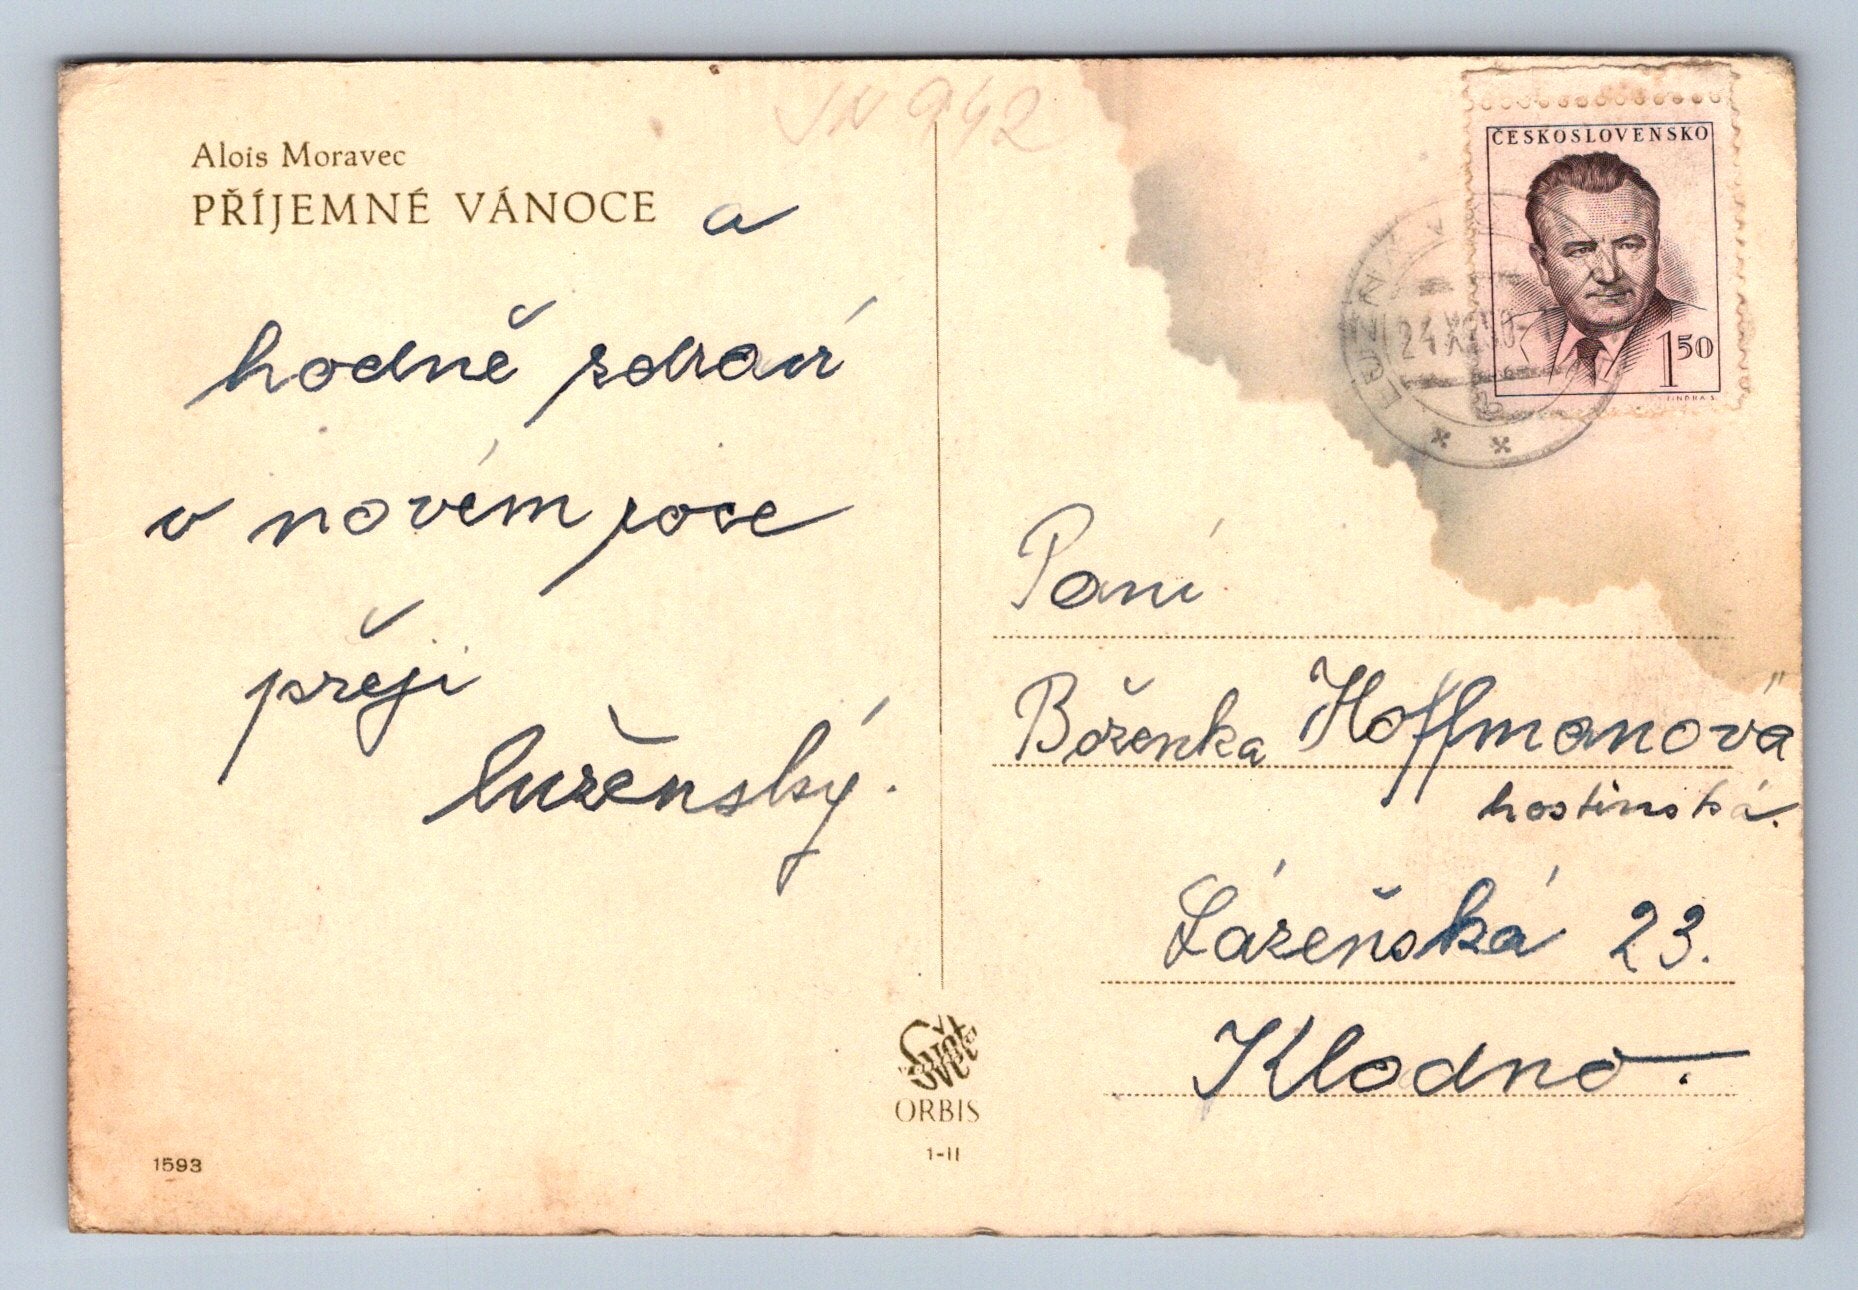 JN 942
Alois Moravec
PŘÍJEMNÉ VÁNOCE a
hodně zdraví
v novém roce
přeji
Luzěnský.
ČESKOSLOVENSKO
1 50
JINDRA S.
24 XII 50
Paní
Boženka Hoffmanová
hostinská.
Lázeňská 23.
Kladno.
Svět
ORBIS
1-II
1593